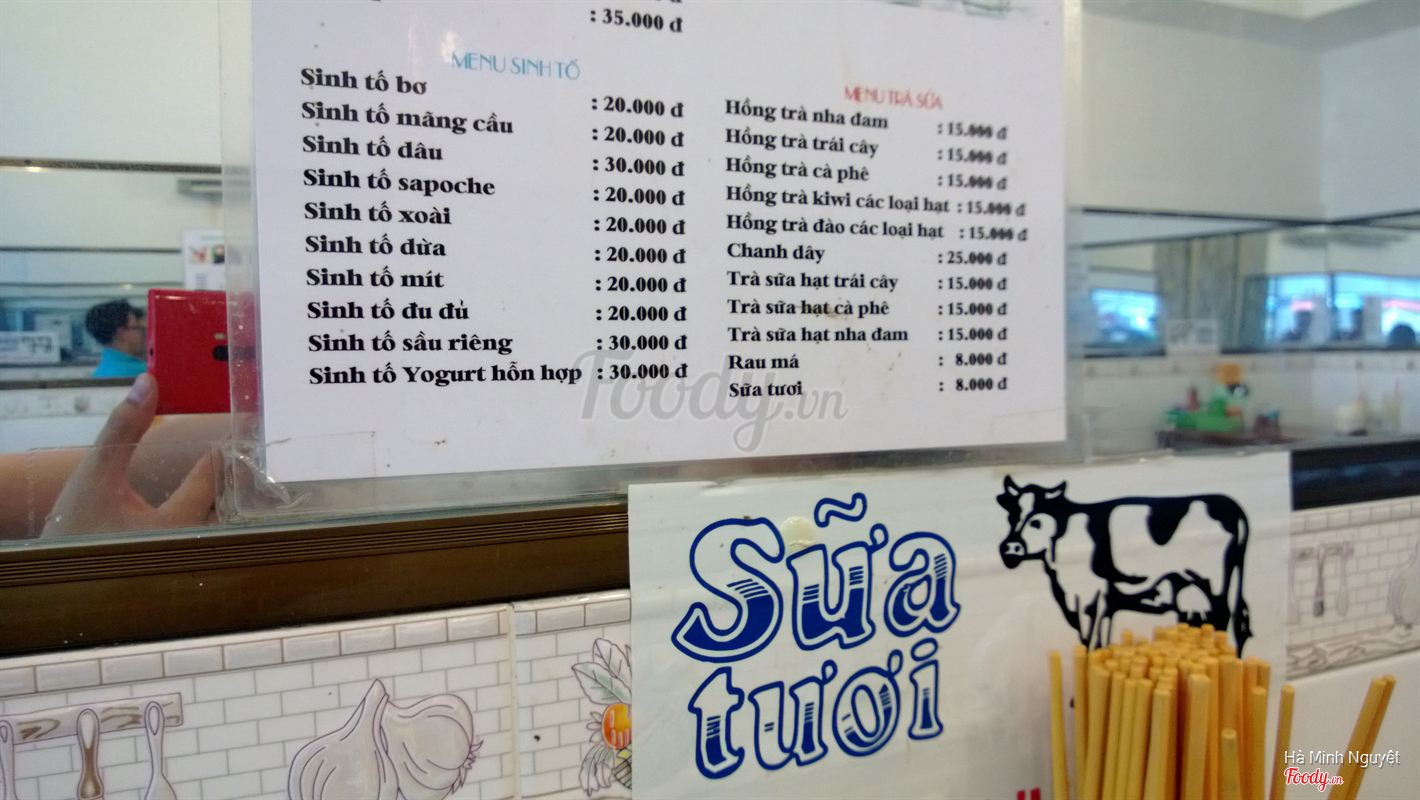 : 35.000 đ
MENU SINH TỐ
Sinh tố bơ : 20.000 đ
Sinh tố mãng cầu : 20.000 đ
Sinh tố dâu : 30.000 đ
Sinh tố sapoche : 20.000 đ
Sinh tố xoài : 20.000 đ
Sinh tố dừa : 20.000 đ
Sinh tố mít : 20.000 đ
Sinh tố đu đủ : 20.000 đ
Sinh tố sầu riêng : 30.000 đ
Sinh tố Yogurt hỗn hợp : 30.000 đ
MENU TRÀ SỮA
Hồng trà nha đam : 15.000 đ
Hồng trà trái cây : 15.000 đ
Hồng trà cà phê : 15.000 đ
Hồng trà kiwi các loại hạt : 15.000 đ
Hồng trà đào các loại hạt : 15.000 đ
Chanh dây : 25.000 đ
Trà sữa hạt trái cây : 15.000 đ
Trà sữa hạt cà phê : 15.000 đ
Trà sữa hạt nha đam : 15.000 đ
Rau má : 8.000 đ
Sữa tươi : 8.000 đ
Foody.vn
Sữa
tươi
Hà Minh Nguyệt
Foody.vn